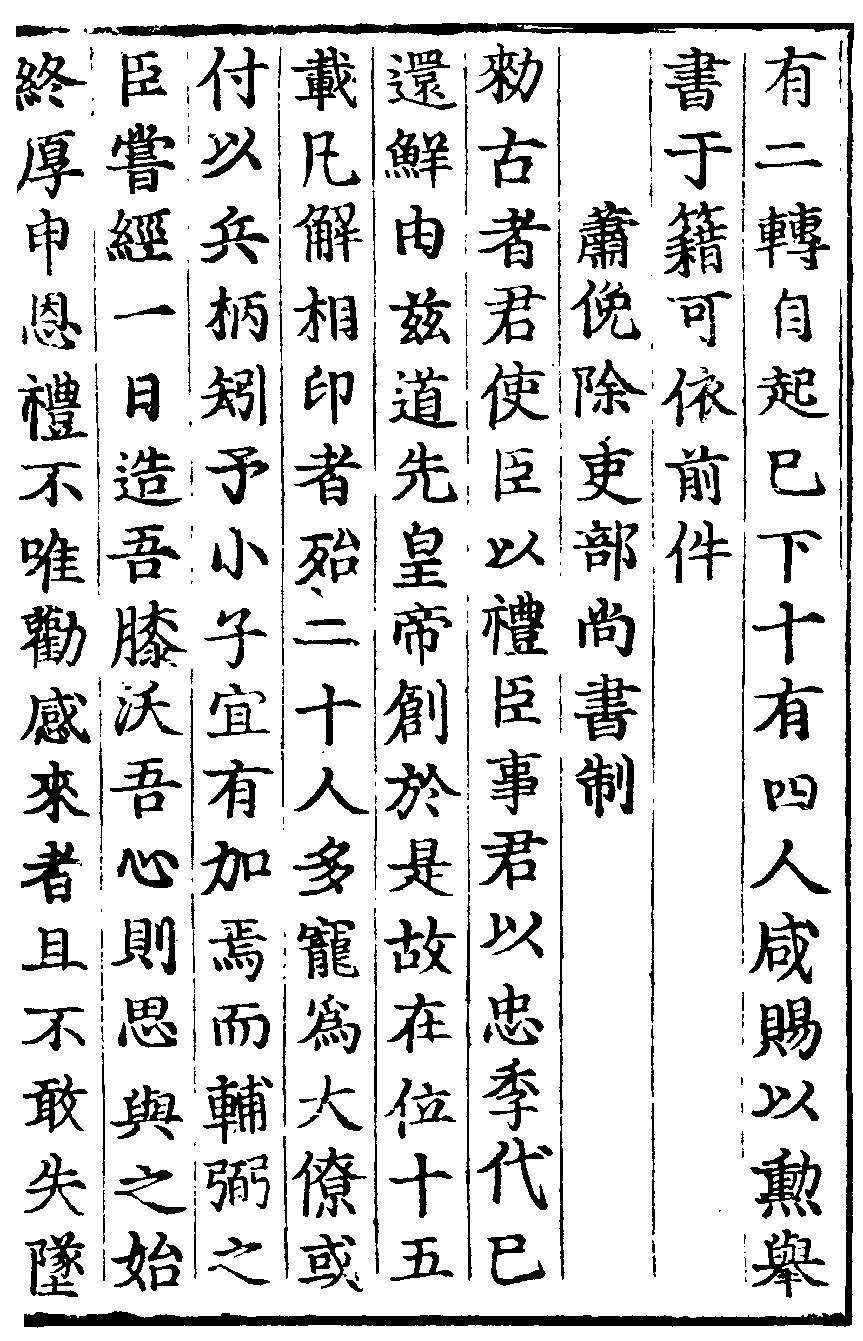 有二轉自起已下十有四人咸賜以勲舉
書于籍可依前件
蕭俛除吏部尚書制
勑古者君使臣以禮臣事君以忠季代已
還鮮由兹道先皇帝創於是故在位十五
載凡解相印者殆二十人多寵爲大僚或
付以兵柄矧予小子宜有加焉而輔弼之
臣嘗經一日造吾膝沃吾心則思與之始
終厚申恩禮不唯勸感來者且不敢失墜